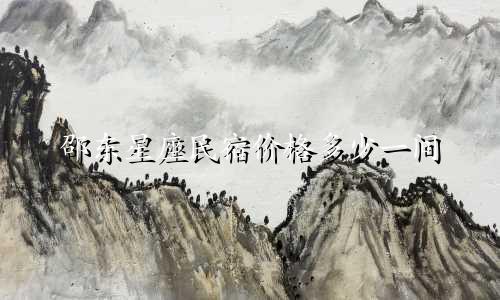 邵东星座民宿价格多少一间